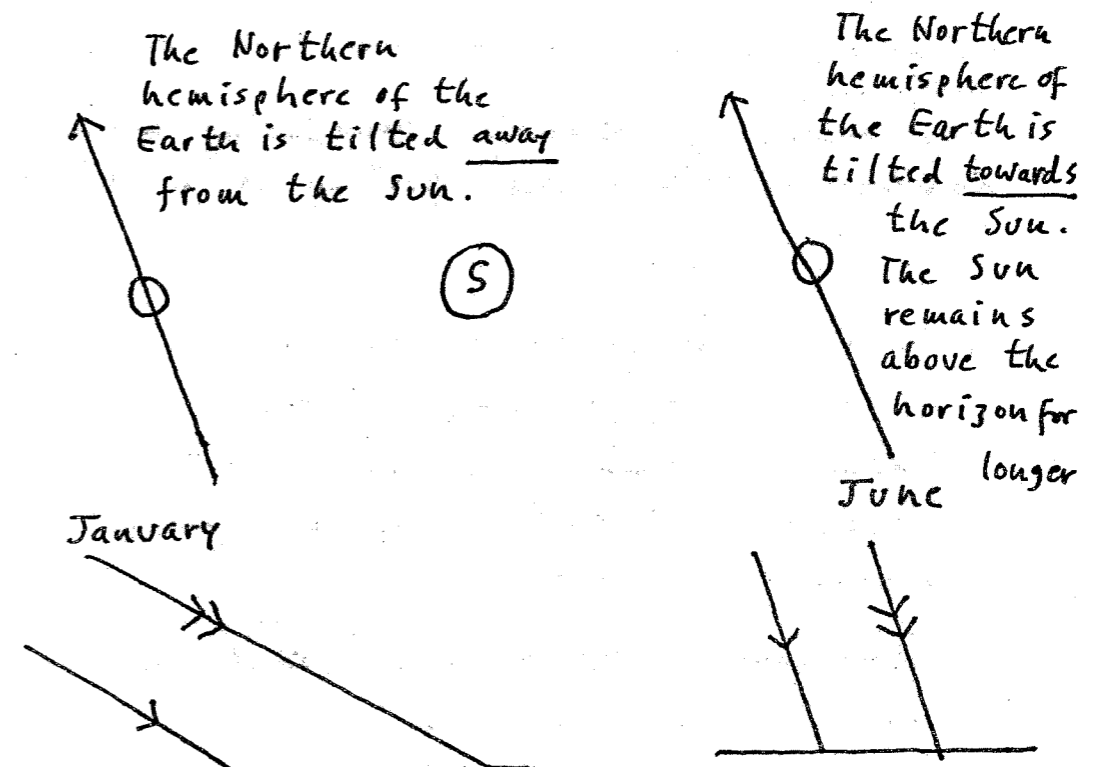 The Northern
hemisphere of the
Earth is tilted away
from the Sun.
S
January
The Northern
hemisphere of
the Earth is
tilted towards
the Sun.
The Sun
remains
above the
horizon for
longer
June